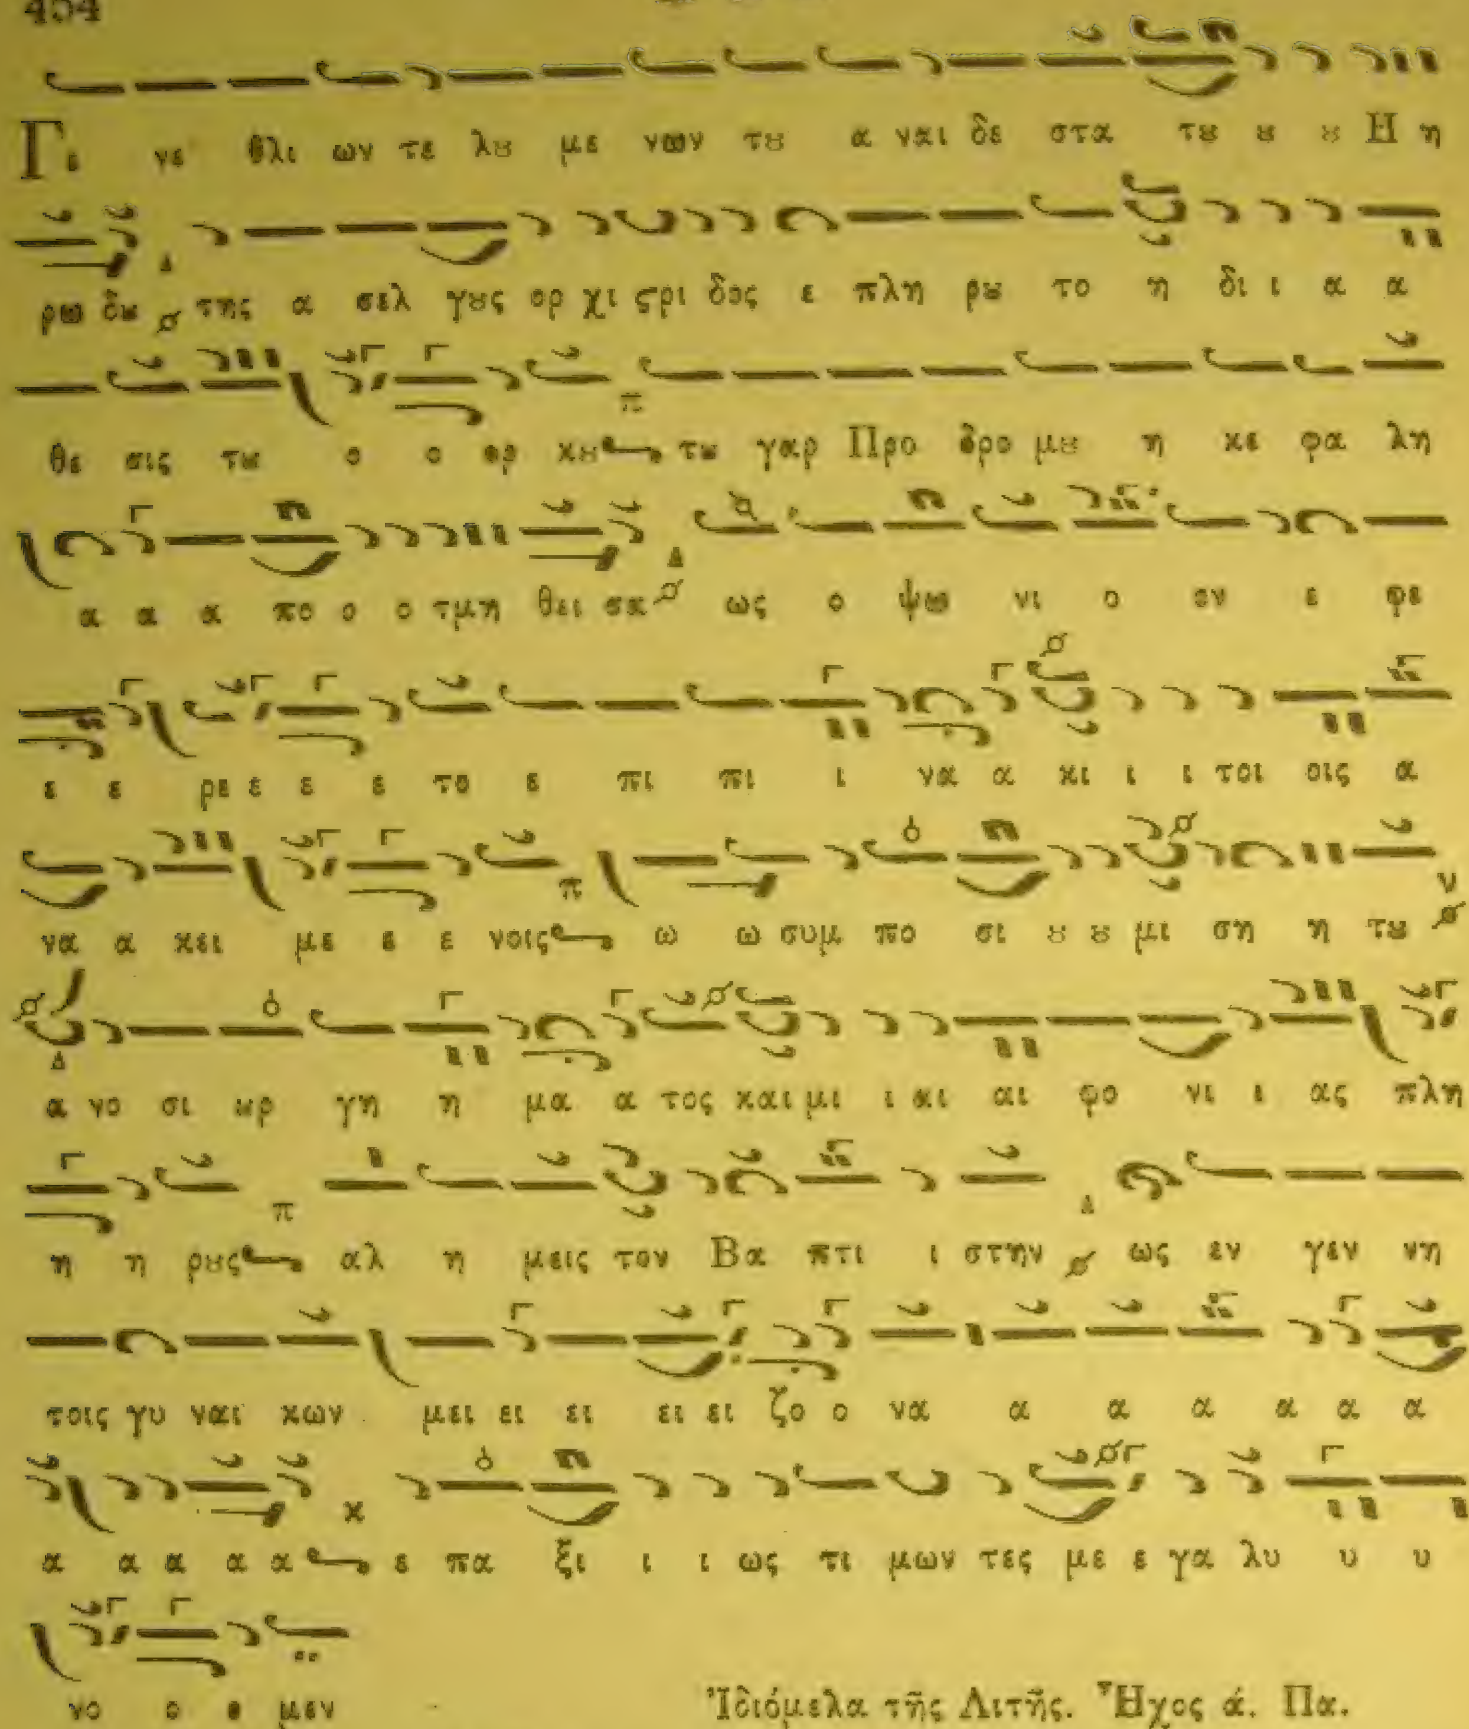 454
Γε νε θλι ων τε λȣ με νων τȣ α ναι δε στα τȣ ȣ ȣ Η η
ρω δȣ της α σελ γȣς ορ χι ϛρι δος ε πλη ρȣ το η δι ι α α
θε σις τȣ ο ο ορ κȣ τȣ γαρ Προ δρο μȣ η κε φα λη
α α α πο ο ο τμη θει σα ως ο ψω νι ο ον ε φε
ε ε ρε ε ε ε το ε πι πι ι να α κι ι ι τοι οις α
να α κει με ε ε νοις ω ω συμ πο σι ȣ ȣ μι ση η τȣ
α νο σι ȣρ γη η μα α τος και μι ι αι αι φο νι ι ας πλη
η η ρȣς αλ η μεις τον Βα πτι ι στην ως εν γεν νη
τοις γυ ναι κων μει ει ει ει ει ζο ο να α α α α α α
α α α α α ε πα ξι ι ι ως τι μων τες με ε γα λυ υ υ
νο ο ο μεν
Ἰδιόμελα τῆς Λιτῆς. Ἦχος ά. Πα.